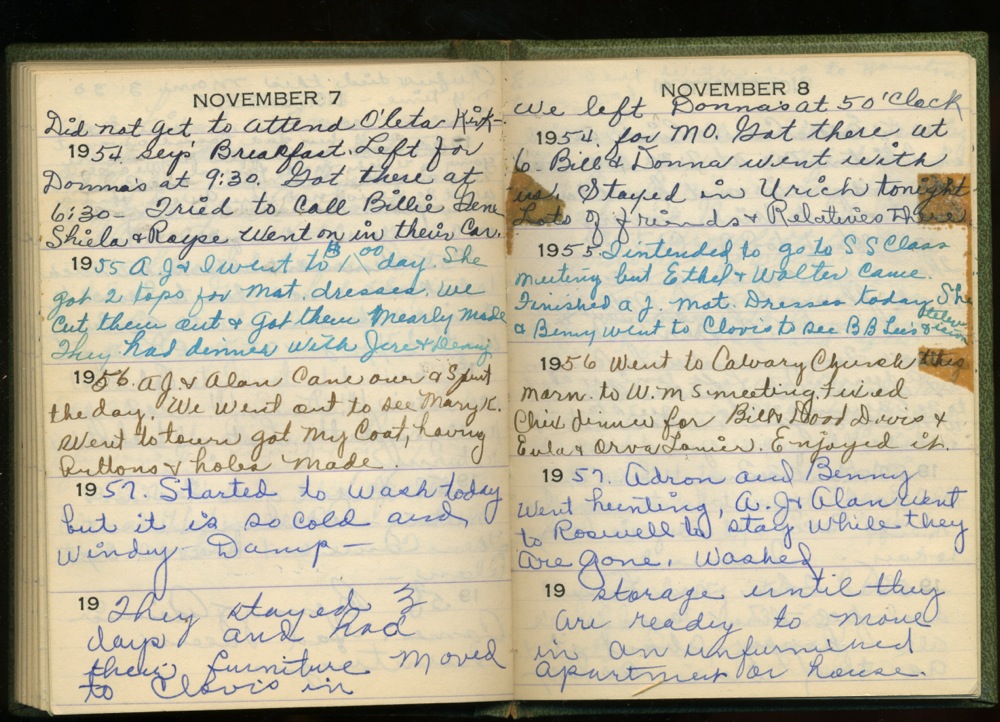 NOVEMBER 7
Did not get to attend O'leta Kirk-
1954. seys' Breakfast. Left for
Donna's at 9:30. Got there at
6:30 - Tried to Call Billie Gene
Shiela & Royse Went on in their Car.
1955 A J & I went to $1.00 day. She
got 2 tops for Mat. dresses. We
Cut them out & got them Nearly Made
They had dinner with Jere & Deany
1956. A J. & Alan Came over & Spent
the day. We Went out to see Mary K.
Went to town got My Coat, having
Buttons & holes Made.
1957. Started to Wash today
but it is so Cold and
Windy - Damp -
19 They stayed 3
days and had
their furniture Moved
to Clovis in
NOVEMBER 8
We left Donna's at 5 O'Clock
1954. for MO. Got there at
6. Bill & Donna went with
us. Stayed in Urich tonight
Lots of friends & Relatives There
1955. I intended to go to S S Class
Meeting but Ethel & Walter Came.
Finished A J. Mat. Dresses today. She
& Benny Went to Clovis to see B B Leis &
1956 Went to Calvary Church this
morn. to W. M S meeting. Fixed
Chix dinner for Bill & Dood Davis &
Eula & Orva Lanier. Enjoyed it.
1957. Adron and Benny
Went hunting, A. J. & Alan Went
to Roswell to stay While they
are gone. Washed
19 storage until they
are ready to move
in an unfurnished
apartment or house.